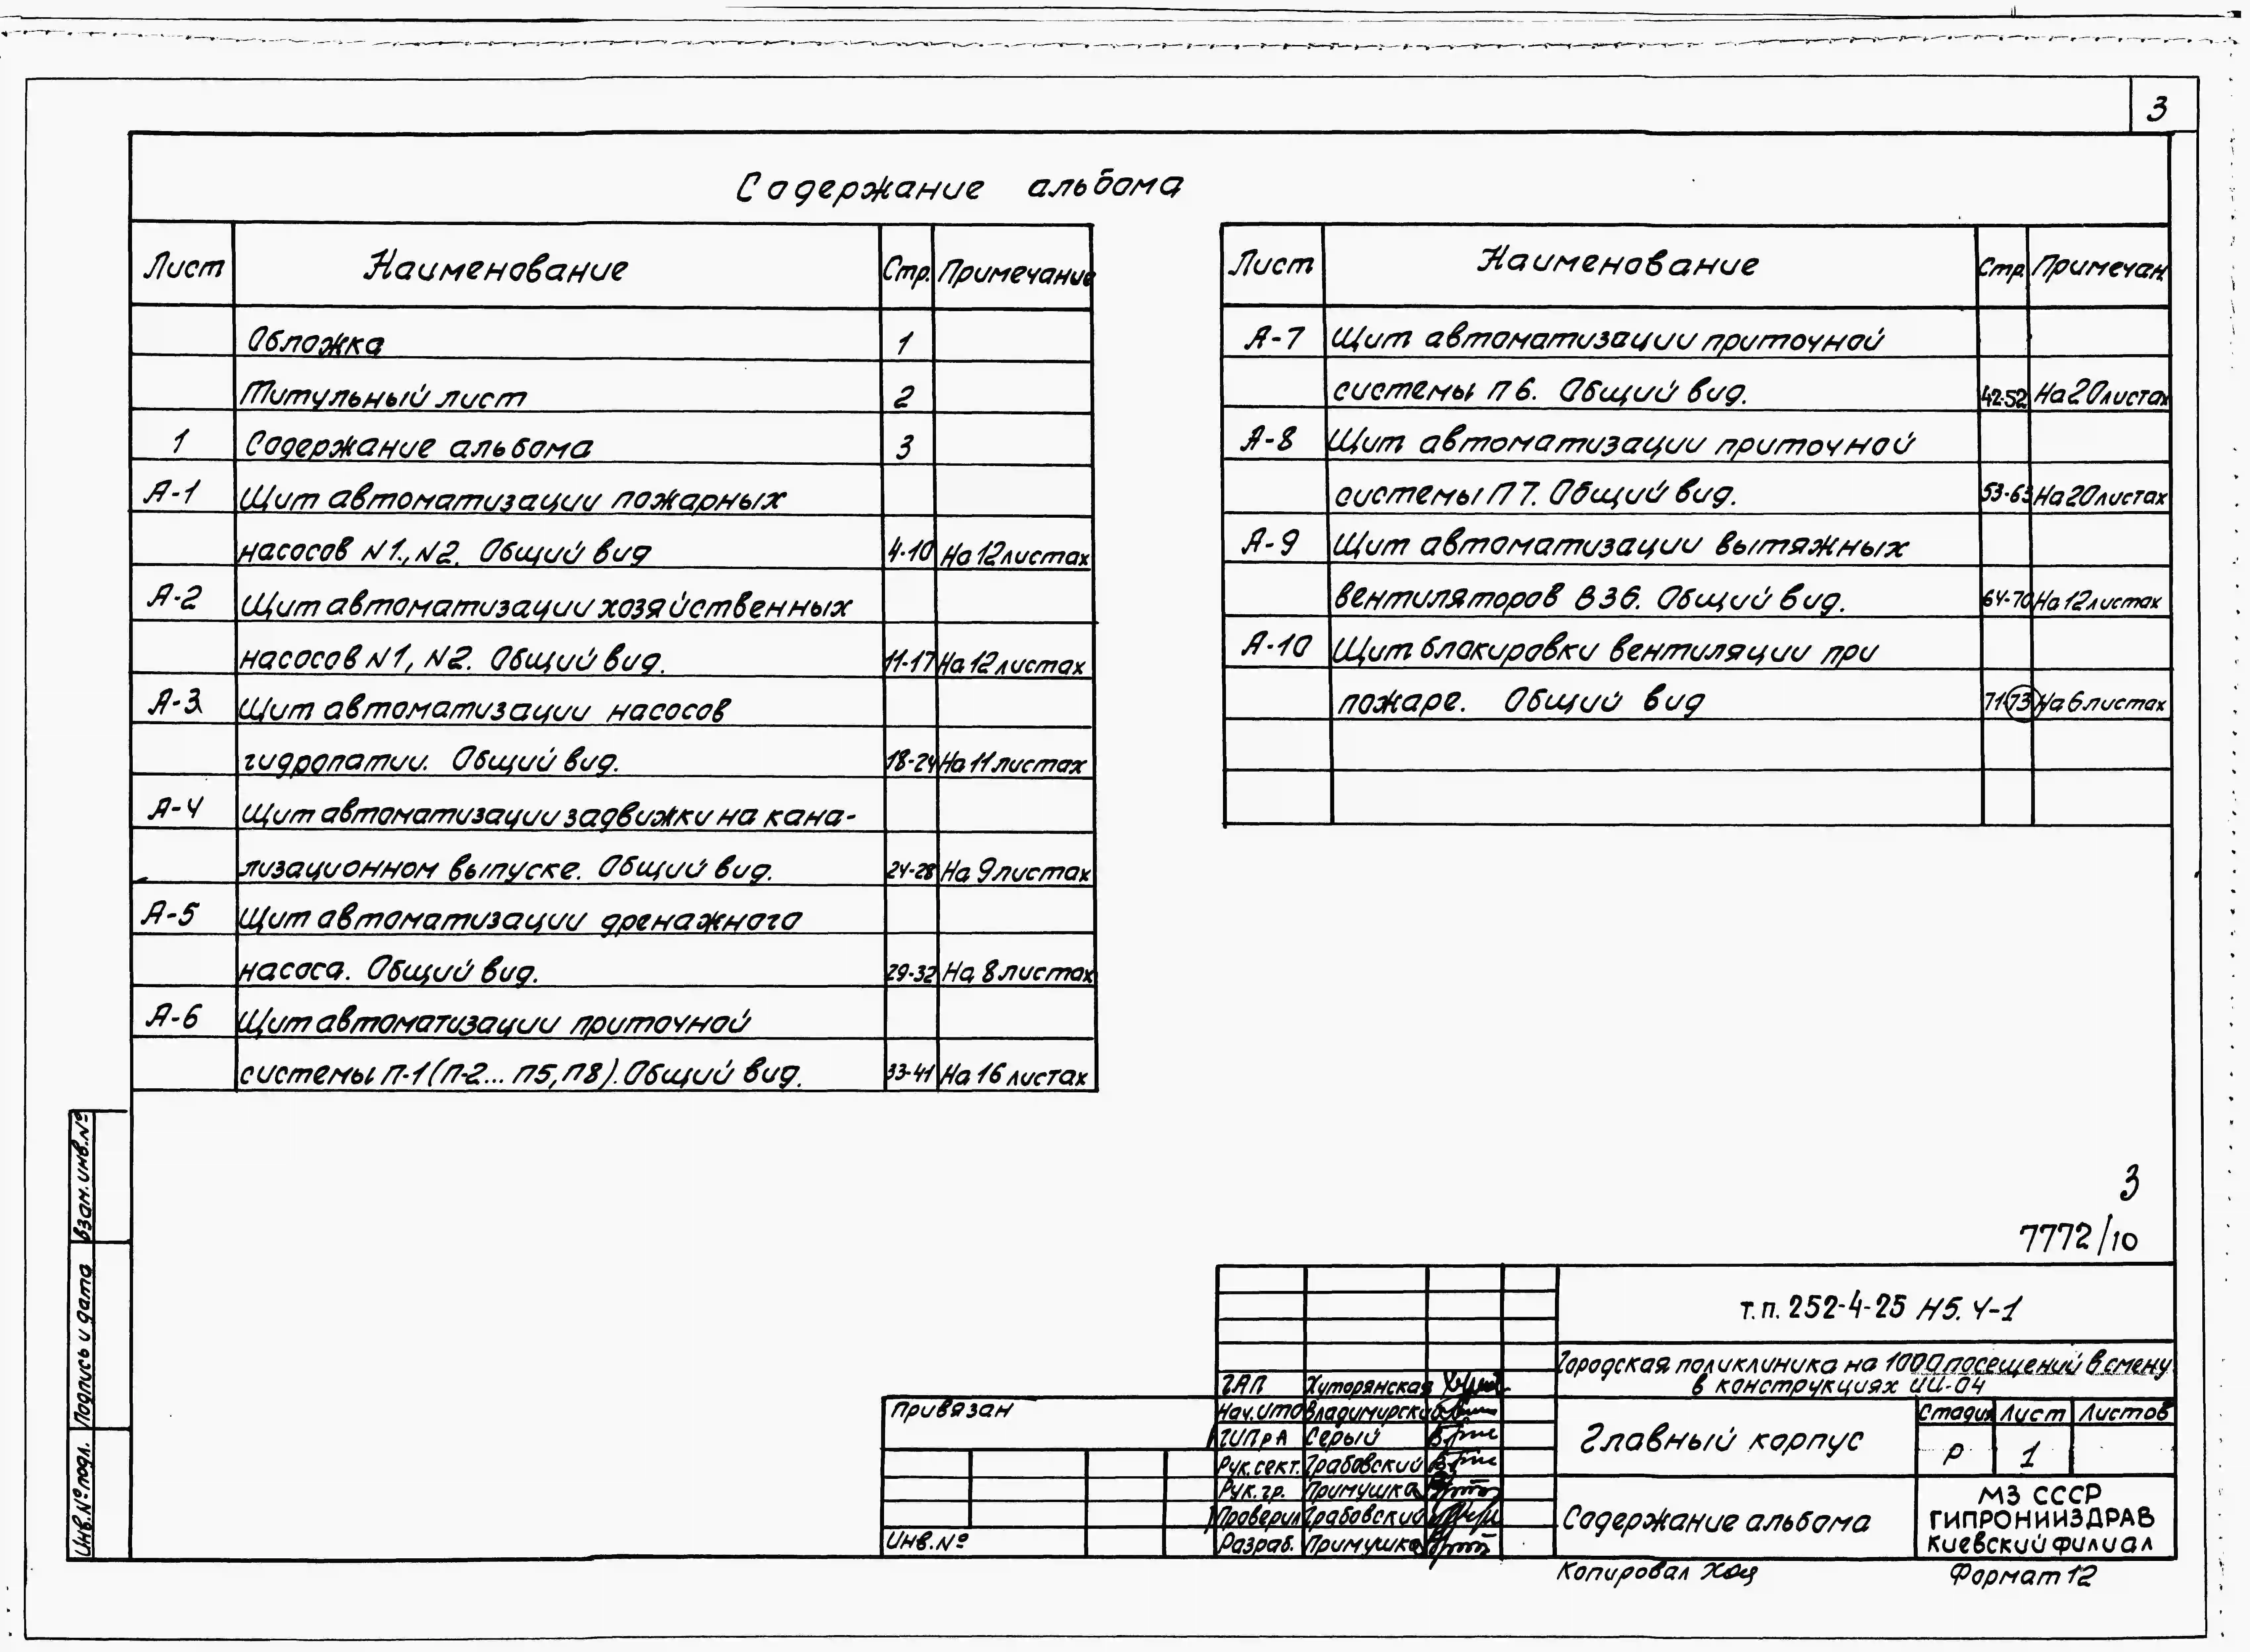 3
Содержание альбома
Лист Наименование Стр. Примечание
Обложка 1
Титульный лист 2
1 Содержание альбома 3
А-1 Щит автоматизации пожарных
насосов N1., N2. Общий вид 4-10 На 12 листах
А-2 Щит автоматизации хозяйственных
насосов N1, N2. Общий вид. 11-17 На 12 листах
А-3 Щит автоматизации насосов
гидропатии. Общий вид. 18-24 На 11 листах
А-4 Щит автоматизации задвижки на кана-
лизационном выпуске. Общий вид. 24-28 На 9 листах
А-5 Щит автоматизации дренажного
насоса. Общий вид. 29-32 На 8 листах
А-6 Щит автоматизации приточной
системы П-1 (П-2... П5, П8). Общий вид. 33-41 На 16 листах
Лист Наименование Стр. Примечан.
А-7 Щит автоматизации приточной
системы П 6. Общий вид. 42-52 На 20 листах
А-8 Щит автоматизации приточной
системы П 7. Общий вид. 53-63 На 20 листах
А-9 Щит автоматизации вытяжных
вентиляторов В 36. Общий вид. 64-70 На 12 листах
А-10 Щит блокировки вентиляции при
пожаре. Общий вид 71-73 На 6 листах
3
7772/10
Взам. инв. №
Подпись и дата
Инв. № подл.
Т.п. 252-4-25 Н5. Ч-1
Городская поликлиника на 1000 посещений в смену
в конструкциях ИИ-04
ГАП Хуторянская
Нач. ИТО Владимирский
ГИПрА Серый
Рук. сект. Грабовский
Рук. гр. Примушка
Проверил Грабовский
Разраб. Примушка
Привязан
Инв. №
Главный корпус
Стадия Лист Листов
Р 1
Содержание альбома
МЗ СССР
ГИПРОНИИЗДРАВ
Киевский филиал
Копировал
Формат 12